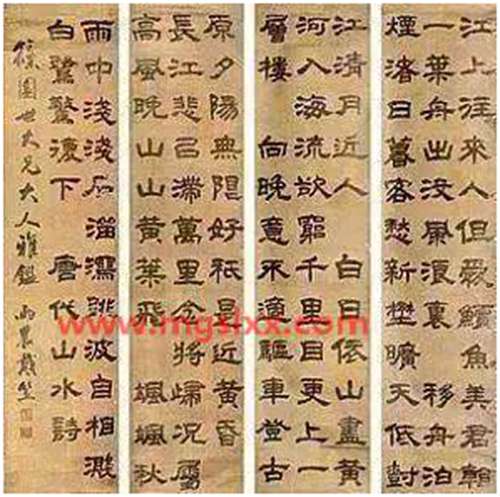 江上往來人但愛鱸魚美君看
一葉舟出没風浪裏 移舟泊
煙渚日暮客愁新壄曠天低樹
江清月近人 白日依山盡黃
河入海流欲窮千里目更上一
層樓 向晚意不適驅車登古
原夕陽無限好祇是近黃昏
長江悲已滯萬里念將歸況屬
高風晚山山黃葉飛 颯颯秋
雨中淺淺石溜瀉跳波自相濺
白鷺驚復下 唐代山水詩
園世大兄大人雅鑑
www.mgslxx.com